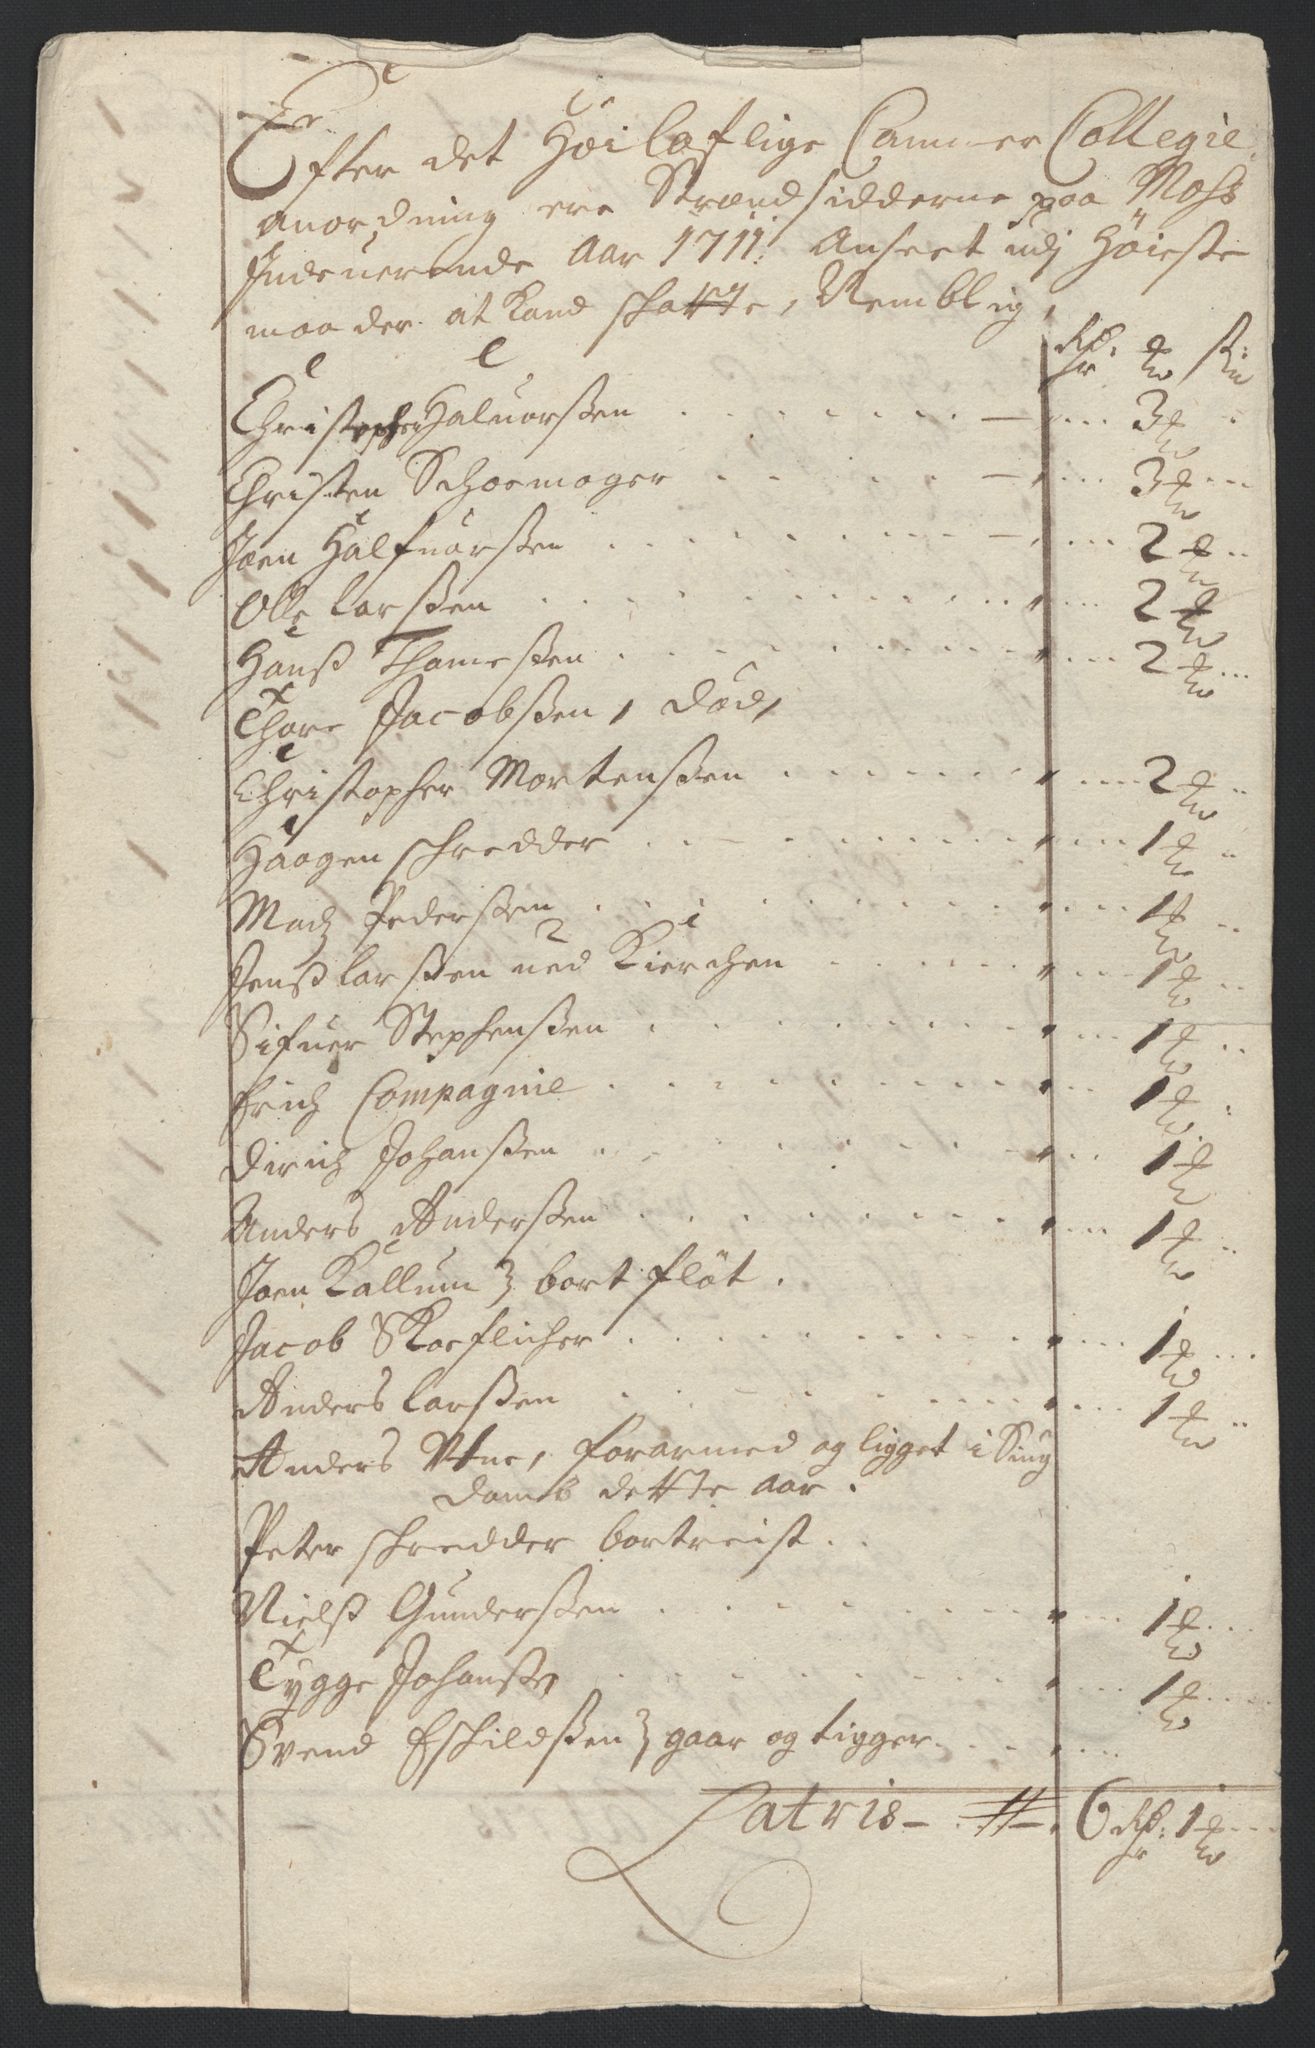 Efter det Höilaflige Cammer Collegie
anordning ere Strandsidderne paa Moss
Indeuerende Aar 1711 Anseet udj Höieste
maader at kand skatte, Nemblig,
Rdr: ort sk:
Christopher Haluorßen - 3 ort
Christen Schoemager - 3 ort
Joen Halfuorßen - 2 ort
Olle Larßen 2 ort
Hanß Thameßen 2 ort
Thore Jacobßen, död,
Christopher Mortenßen 2 ort
Haagen schredder 1 ort
Madz Pederßen 1 ort
Jenß Larßen ued Kierchen 1 ort
Sifuer Stephenßen 1 ort
Erich Compagnie 1 ort
Dirich Johanßen 1 ort
Anders Anderßen 1 ort
Joen Kallum bort fløt.
Jacob Skoeflicher 1 ort
Anders Larßen 1 ort
Anders forarmed og ligget i Siug
domb dette aar.
Peter schredder bortreist.
Nielß Gunderßen 1 ort
Tygge Johanßen 1 ort
Svend Eschildßen gaar og tigger
Latris - 6 Rdr: 1 ort